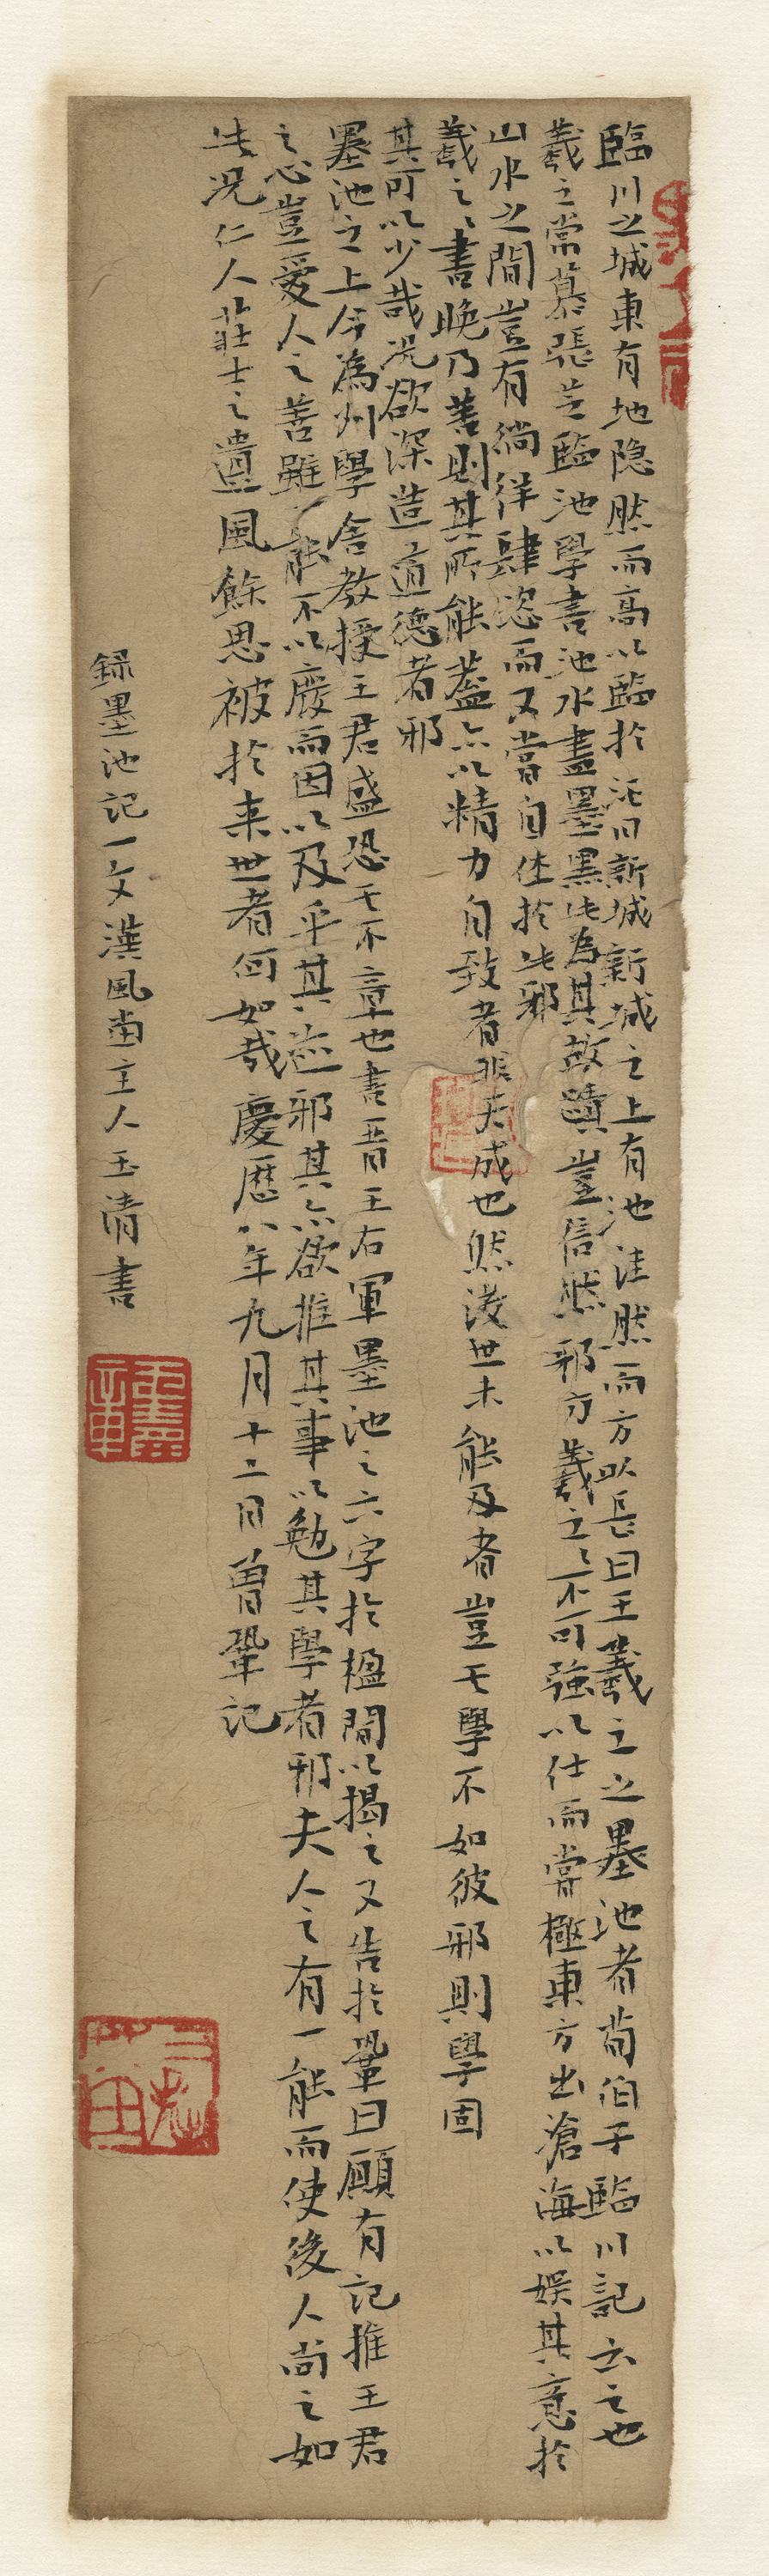 臨川之城東有地隐然而高以臨於溪曰新城新城之上有池洼然而方以長曰王羲之之墨池者荀伯子臨川記云之也
羲之常慕張芝臨池學書池水盡墨黑此為其故蹟豈信然邪方羲之之不可強以仕而嘗極東方出滄海以娱其意於
山水之間豈有徜徉肆恣而又嘗自休於此邪
羲之之書晚乃善則其所能蓋亦以精力自致者非天成也然後世未能及者豈无學不如彼邪則學固
其可以少哉况欲深造道德者邪
墨池之上今為州學舍教授王君盛恐其不章也書晉王右軍墨池之六字於楹間以揭之又告於鞏曰願有記推王君
之心豈愛人之善雖一能不以廢而因以及乎其迹邪其亦欲推其事以勉其學者邪夫人之有一能而使後人尚之如
此况仁人莊士之遺風餘思被於来世者何如哉慶歷八年九月十二日曾鞏記
録墨池記一文漢風堂主人玉清書